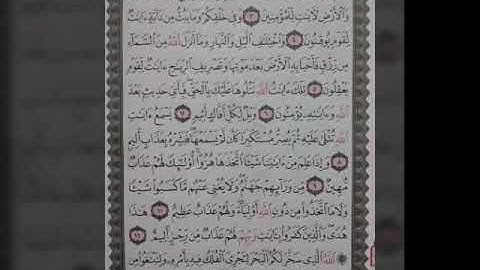 وَالْأَرْضِ لَآيَاتٍ لِّلْمُؤْمِنِينَ ٣ وَفِي خَلْقِكُمْ وَمَا يَبُثُّ مِن دَابَّةٍ ءَايَٰتٌ
لِّقَوْمٍ يُوقِنُونَ ٤ وَاخْتِلَٰفِ الَّيْلِ وَالنَّهَارِ وَمَا أَنزَلَ اللَّهُ مِنَ السَّمَاءِ
مِن رِّزْقٍ فَأَحْيَا بِهِ الْأَرْضَ بَعْدَ مَوْتِهَا وَتَصْرِيفِ الرِّيَٰحِ ءَايَٰتٌ لِّقَوْمٍ
يَعْقِلُونَ ٥ تِلْكَ ءَايَٰتُ اللَّهِ نَتْلُوهَا عَلَيْكَ بِالْحَقِّ فَبِأَيِّ حَدِيثٍ بَعْدَ
اللَّهِ وَءَايَٰتِهِ يُؤْمِنُونَ ٦ وَيْلٌ لِّكُلِّ أَفَّاكٍ أَثِيمٍ ٧ يَسْمَعُ ءَايَٰتِ
اللَّهِ تُتْلَىٰ عَلَيْهِ ثُمَّ يُصِرُّ مُسْتَكْبِرًا كَأَن لَّمْ يَسْمَعْهَا فَبَشِّرْهُ بِعَذَابٍ أَلِيمٍ
٨ وَإِذَا عَلِمَ مِنْ ءَايَٰتِنَا شَيْئًا اتَّخَذَهَا هُزُوًا أُولَٰئِكَ لَهُمْ عَذَابٌ
مُّهِينٌ ٩ مِّن وَرَائِهِمْ جَهَنَّمُ وَلَا يُغْنِي عَنْهُم مَّا كَسَبُوا شَيْئًا
وَلَا مَا اتَّخَذُوا مِن دُونِ اللَّهِ أَوْلِيَاءَ وَلَهُمْ عَذَابٌ عَظِيمٌ ١٠ هَٰذَا
هُدًى وَالَّذِينَ كَفَرُوا بِـَٔايَٰتِ رَبِّهِمْ لَهُمْ عَذَابٌ مِّن رِّجْزٍ أَلِيمٌ ١١
۞ اللَّهُ الَّذِي سَخَّرَ لَكُمُ الْبَحْرَ لِتَجْرِيَ الْفُلْكُ فِيهِ بِأَمْرِهِ وَلِتَبْتَغُوا مِن